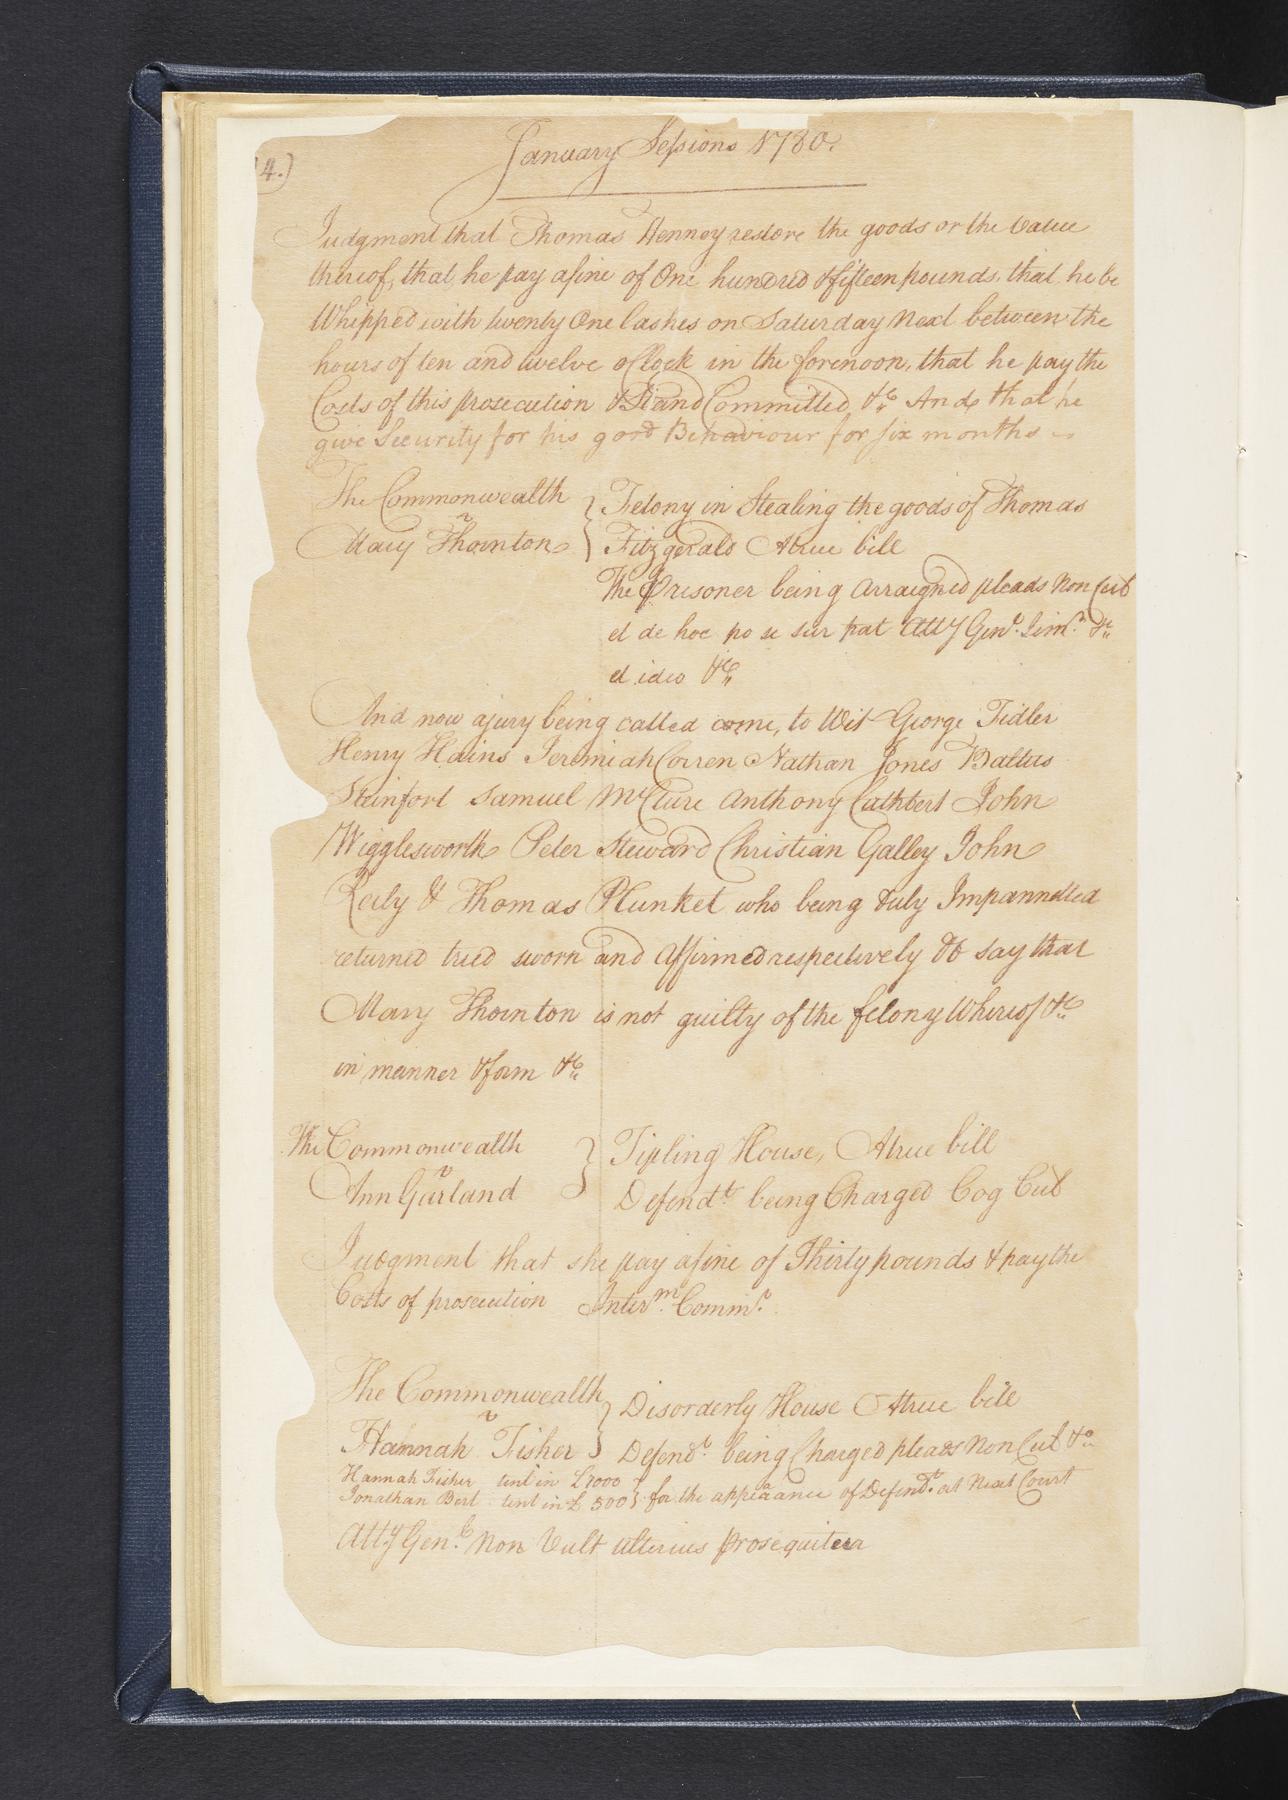 4.)
January Sessions 1780.
Judgment that Thomas Henney restore the goods or the value
thereof, that he pay a fine of One hundred & fifteen pounds, that he be
Whipped with twenty One lashes on Saturday Next between the
hours of ten and twelve oClock in the forenoon, that he pay the
Costs of this prosecution & Stand Committed &c And that he
give Security for his good Behaviour for six months
The Commonwealth } Felony in Stealing the goods of Thomas
v
Mary Thornton } Fitzgerald A true bill
The Prisoner being arraigned pleads Non Cul
et de hoc po se sur pat Atty Genl. Simr. &c
et ideo &c
And now a jury being called come, to Wit George Fidler
Henry Hains Jeremiah Corren Nathan Jones Baltus
Stainfort Samuel McClure Anthony Cathbert John
Wigglesworth Peter Steward Christian Galley John
Reily & Thomas Plunket who being duly Impannelled
returned tried sworn and affirmed respectively do say that
Mary Thornton is not guilty of the felony Whereof &c
in manner & form &c
The Commonwealth } Tipling House, A true bill
v
Ann Garland } Defendt. being Charged Cog Cul
Judgment that she pay a fine of Thirty pounds & pay the
Costs of prosecution Interm. Commr.
The Commonwealth } Disorderly House A true bill
v
Hannah Fisher } Defendt. being Charged pleads Non Cul &c
Hannah Fisher tent in £1000 }
Jonathan Bert tent in £ 500 } for the appearance of Defendt. at Next Court
Atty Genl. Non Vult ulterius prosequiteur